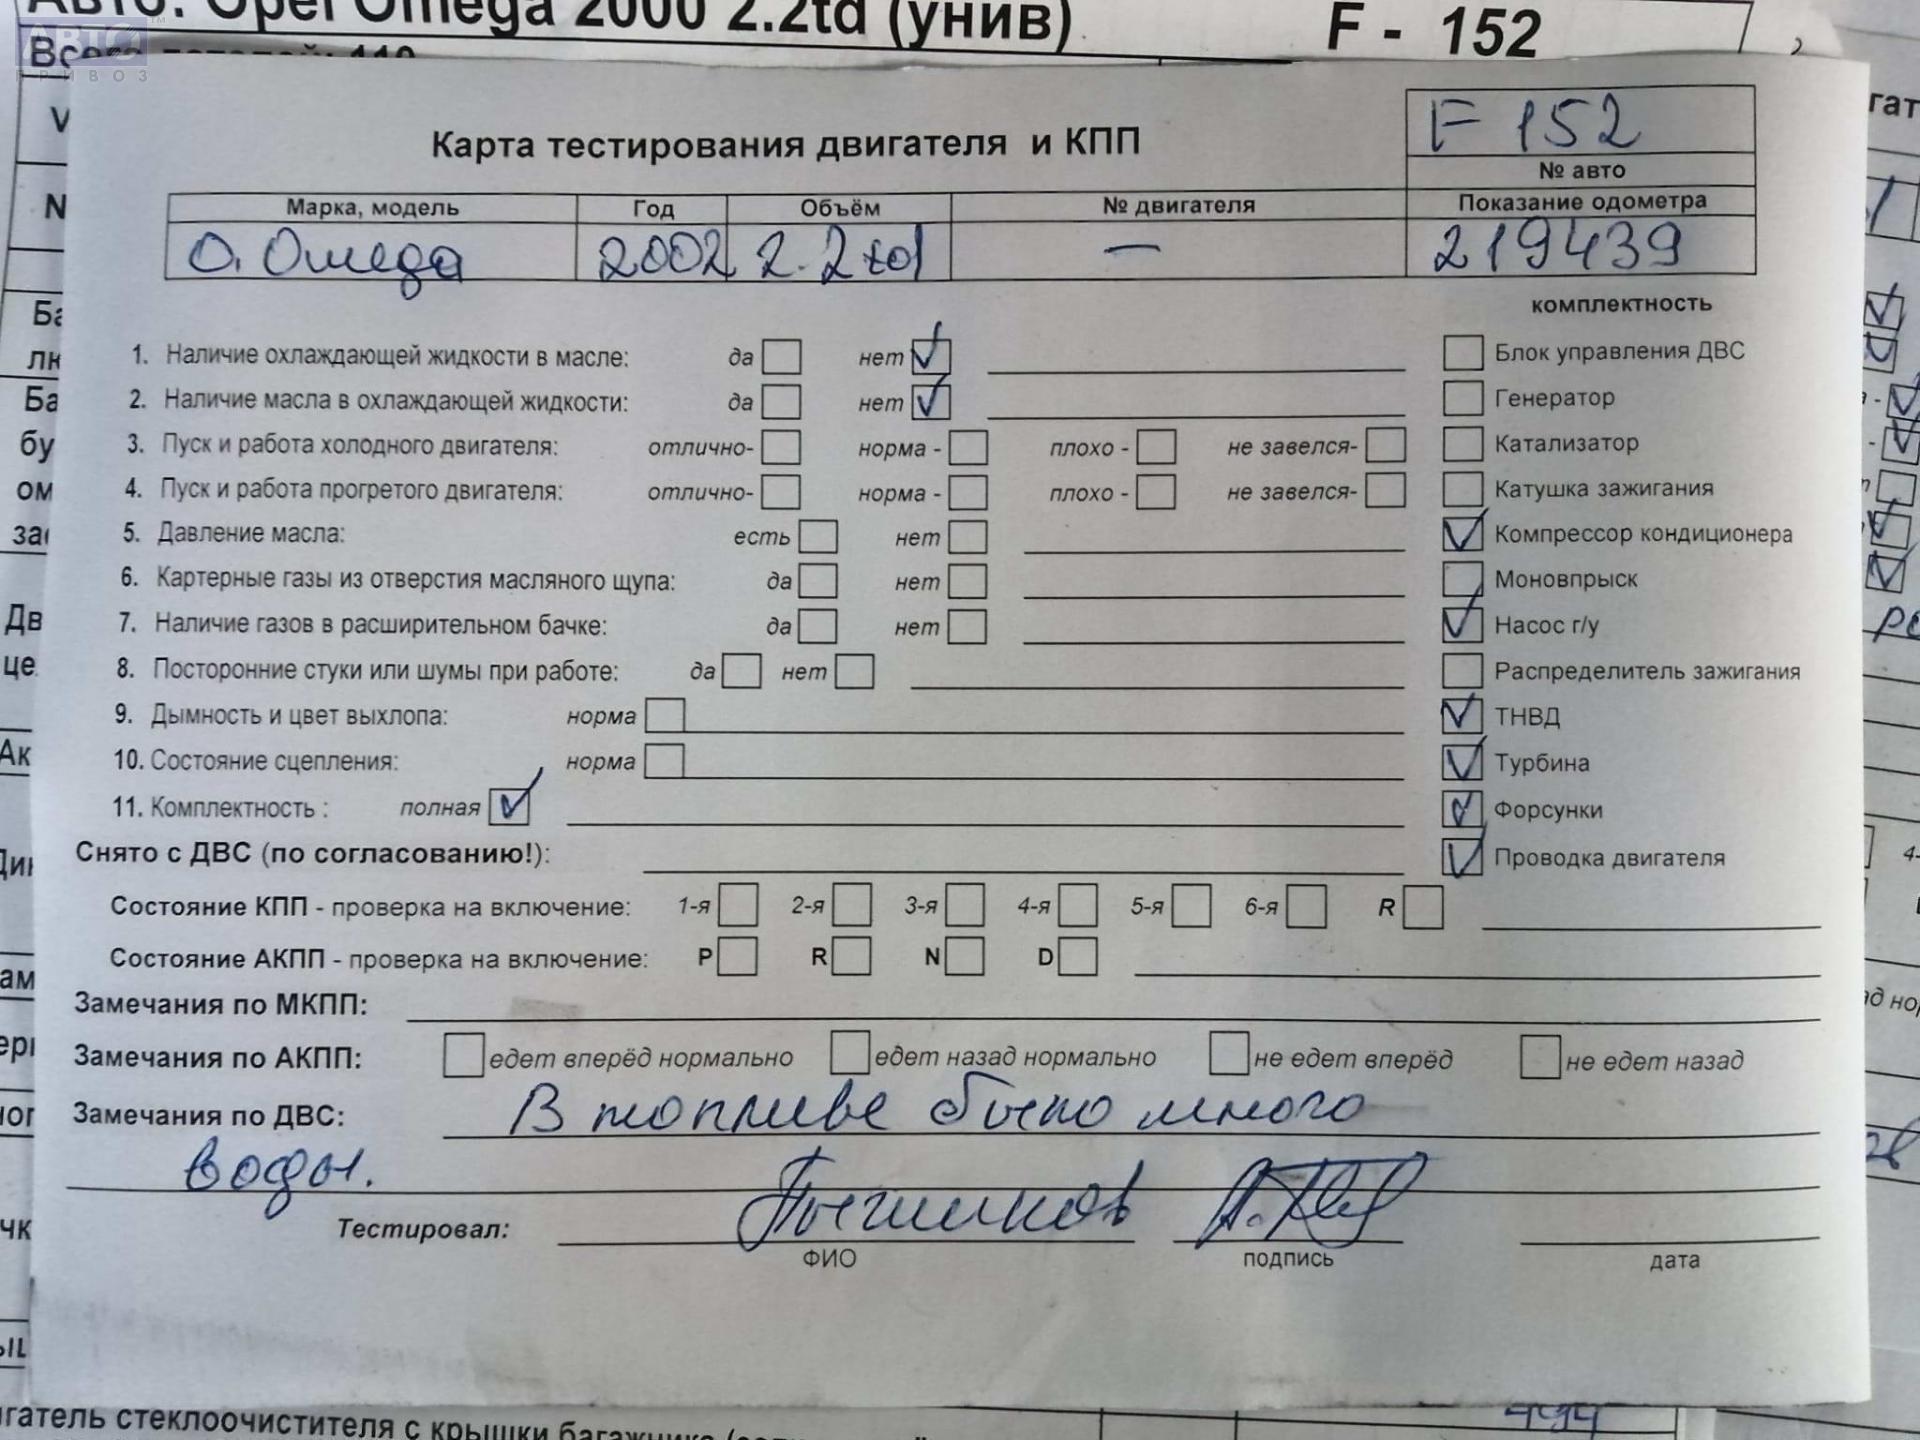 Авто: Opel Omega 2000 2.2td (унив) F - 152
АВТО
ПРИВОЗ
Карта тестирования двигателя и КПП
F 152
№ авто
Марка, модель Год Объём № двигателя Показание одометра
О. Омега 2002 2.2td — 219439
комплектность
1. Наличие охлаждающей жидкости в масле: да нет Блок управления ДВС
2. Наличие масла в охлаждающей жидкости: да нет Генератор
3. Пуск и работа холодного двигателя: отлично- норма - плохо - не завелся- Катализатор
4. Пуск и работа прогретого двигателя: отлично- норма - плохо - не завелся- Катушка зажигания
5. Давление масла: есть нет Компрессор кондиционера
6. Картерные газы из отверстия масляного щупа: да нет Моновпрыск
7. Наличие газов в расширительном бачке: да нет Насос г/у
8. Посторонние стуки или шумы при работе: да нет Распределитель зажигания
9. Дымность и цвет выхлопа: норма ТНВД
10. Состояние сцепления: норма Турбина
11. Комплектность : полная Форсунки
Снято с ДВС (по согласованию!): Проводка двигателя
Состояние КПП - проверка на включение: 1-я 2-я 3-я 4-я 5-я 6-я R
Состояние АКПП - проверка на включение: P R N D
Замечания по МКПП:
Замечания по АКПП: едет вперёд нормально едет назад нормально не едет вперёд не едет назад
Замечания по ДВС: В топливе было много
воды.
Тестировал:
ФИО подпись дата